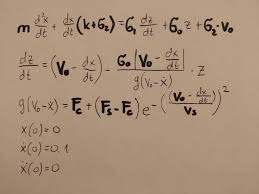 m d²x/dt² + dx/dt (k+б₂) = б₁ dz/dt + б₀ z + б₂ · v₀
dz/dt = (v₀ - dx/dt) - б₀ |v₀ - dx/dt| / g(v₀ - ẋ) · z
g(v₀-ẋ) = F_c + (F_s - F_c) e^-((v₀ - dx/dt)/v_s)²
x(0) = 0
ẋ(0) = 0.1
ẍ(0) = 0